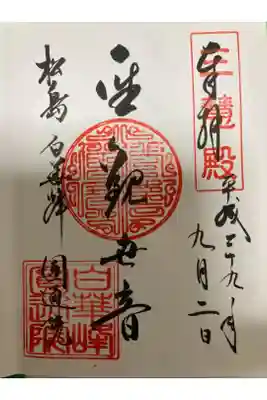 三慧殿
奉拝
平成二十九年
九月二日
聖観世音
松島 白華峰 圓通院
白華峰
圓通院